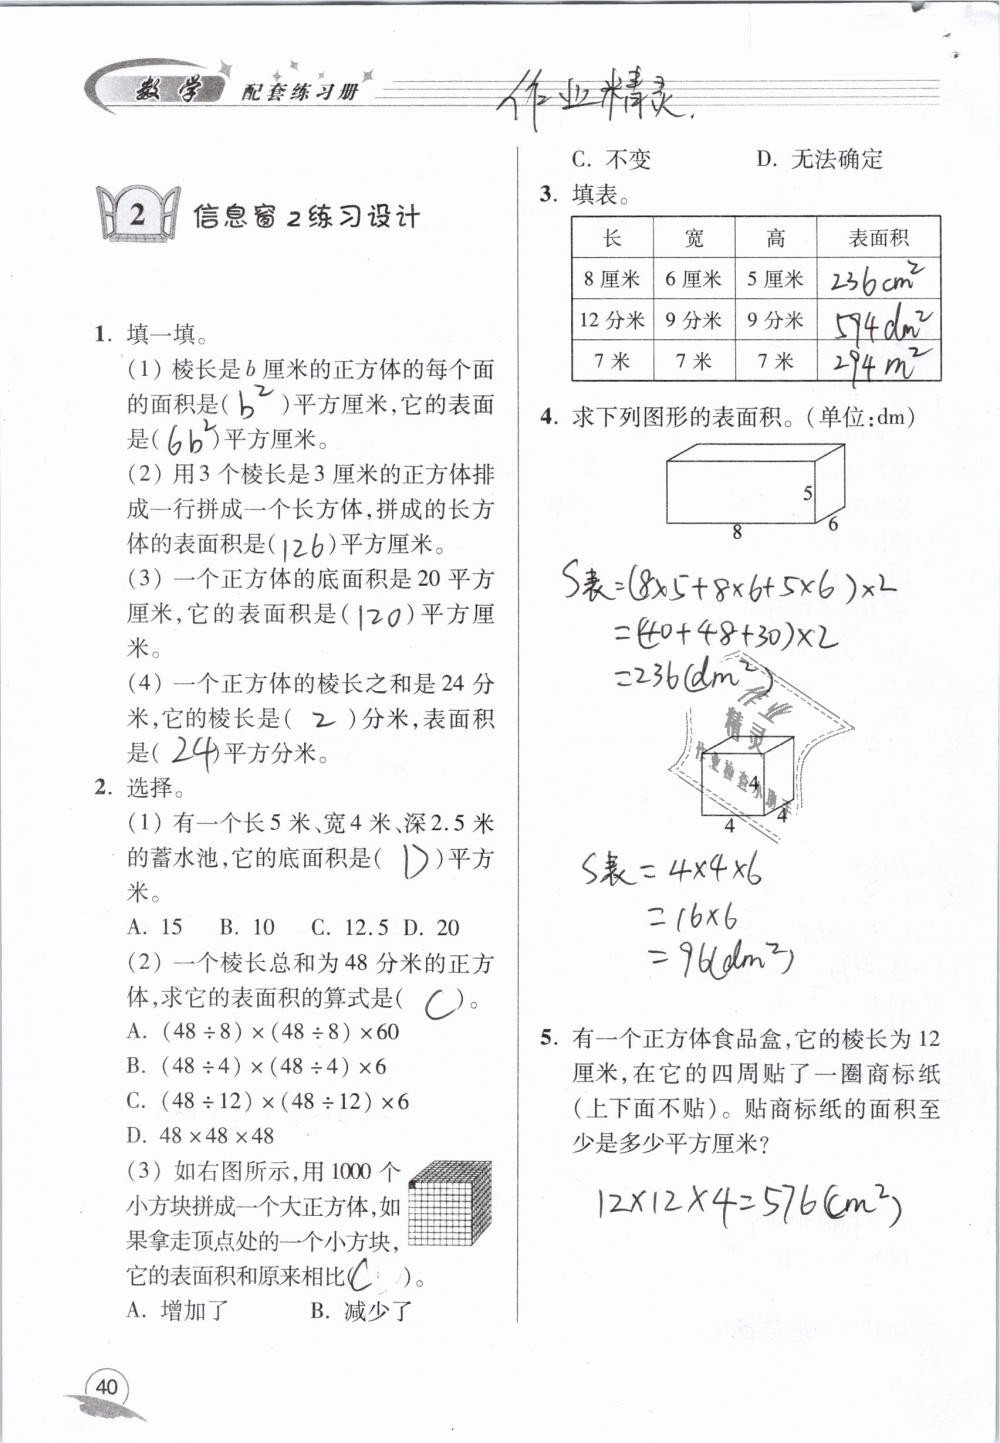 数学 配套练习册
作业精灵.
2 信息窗2练习设计
1. 填一填。
(1) 棱长是b厘米的正方体的每个面
的面积是( b² )平方厘米,它的表面
是( 6b² )平方厘米。
(2) 用3个棱长是3厘米的正方体排
成一行拼成一个长方体,拼成的长方
体的表面积是( 126 )平方厘米。
(3) 一个正方体的底面积是20平方
厘米,它的表面积是( 120 )平方厘
米。
(4) 一个正方体的棱长之和是24分
米,它的棱长是( 2 )分米,表面积
是( 24 )平方分米。
2. 选择。
(1) 有一个长5米、宽4米、深2.5米
的蓄水池,它的底面积是( D )平方
米。
A. 15 B. 10 C. 12.5 D. 20
(2) 一个棱长总和为48分米的正方
体,求它的表面积的算式是( C )。
A. (48÷8)×(48÷8)×60
B. (48÷4)×(48÷4)×6
C. (48÷12)×(48÷12)×6
D. 48×48×48
(3) 如右图所示,用1000个
小方块拼成一个大正方体,如
果拿走顶点处的一个小方块,
它的表面积和原来相比( C )。
A. 增加了 B. 减少了
40
C. 不变 D. 无法确定
3. 填表。
长 宽 高 表面积
8厘米 6厘米 5厘米 236cm²
12分米 9分米 9分米 594dm²
7米 7米 7米 294m²
4. 求下列图形的表面积。(单位:dm)
5
8 6
S表=(8×5+8×6+5×6)×2
=(40+48+30)×2
=236(dm²)
作业
精灵
作业检查小助手
4
4 4
S表=4×4×6
=16×6
=96(dm²)
5. 有一个正方体食品盒,它的棱长为12
厘米,在它的四周贴了一圈商标纸
(上下面不贴)。贴商标纸的面积至
少是多少平方厘米?
12×12×4=576(cm²)